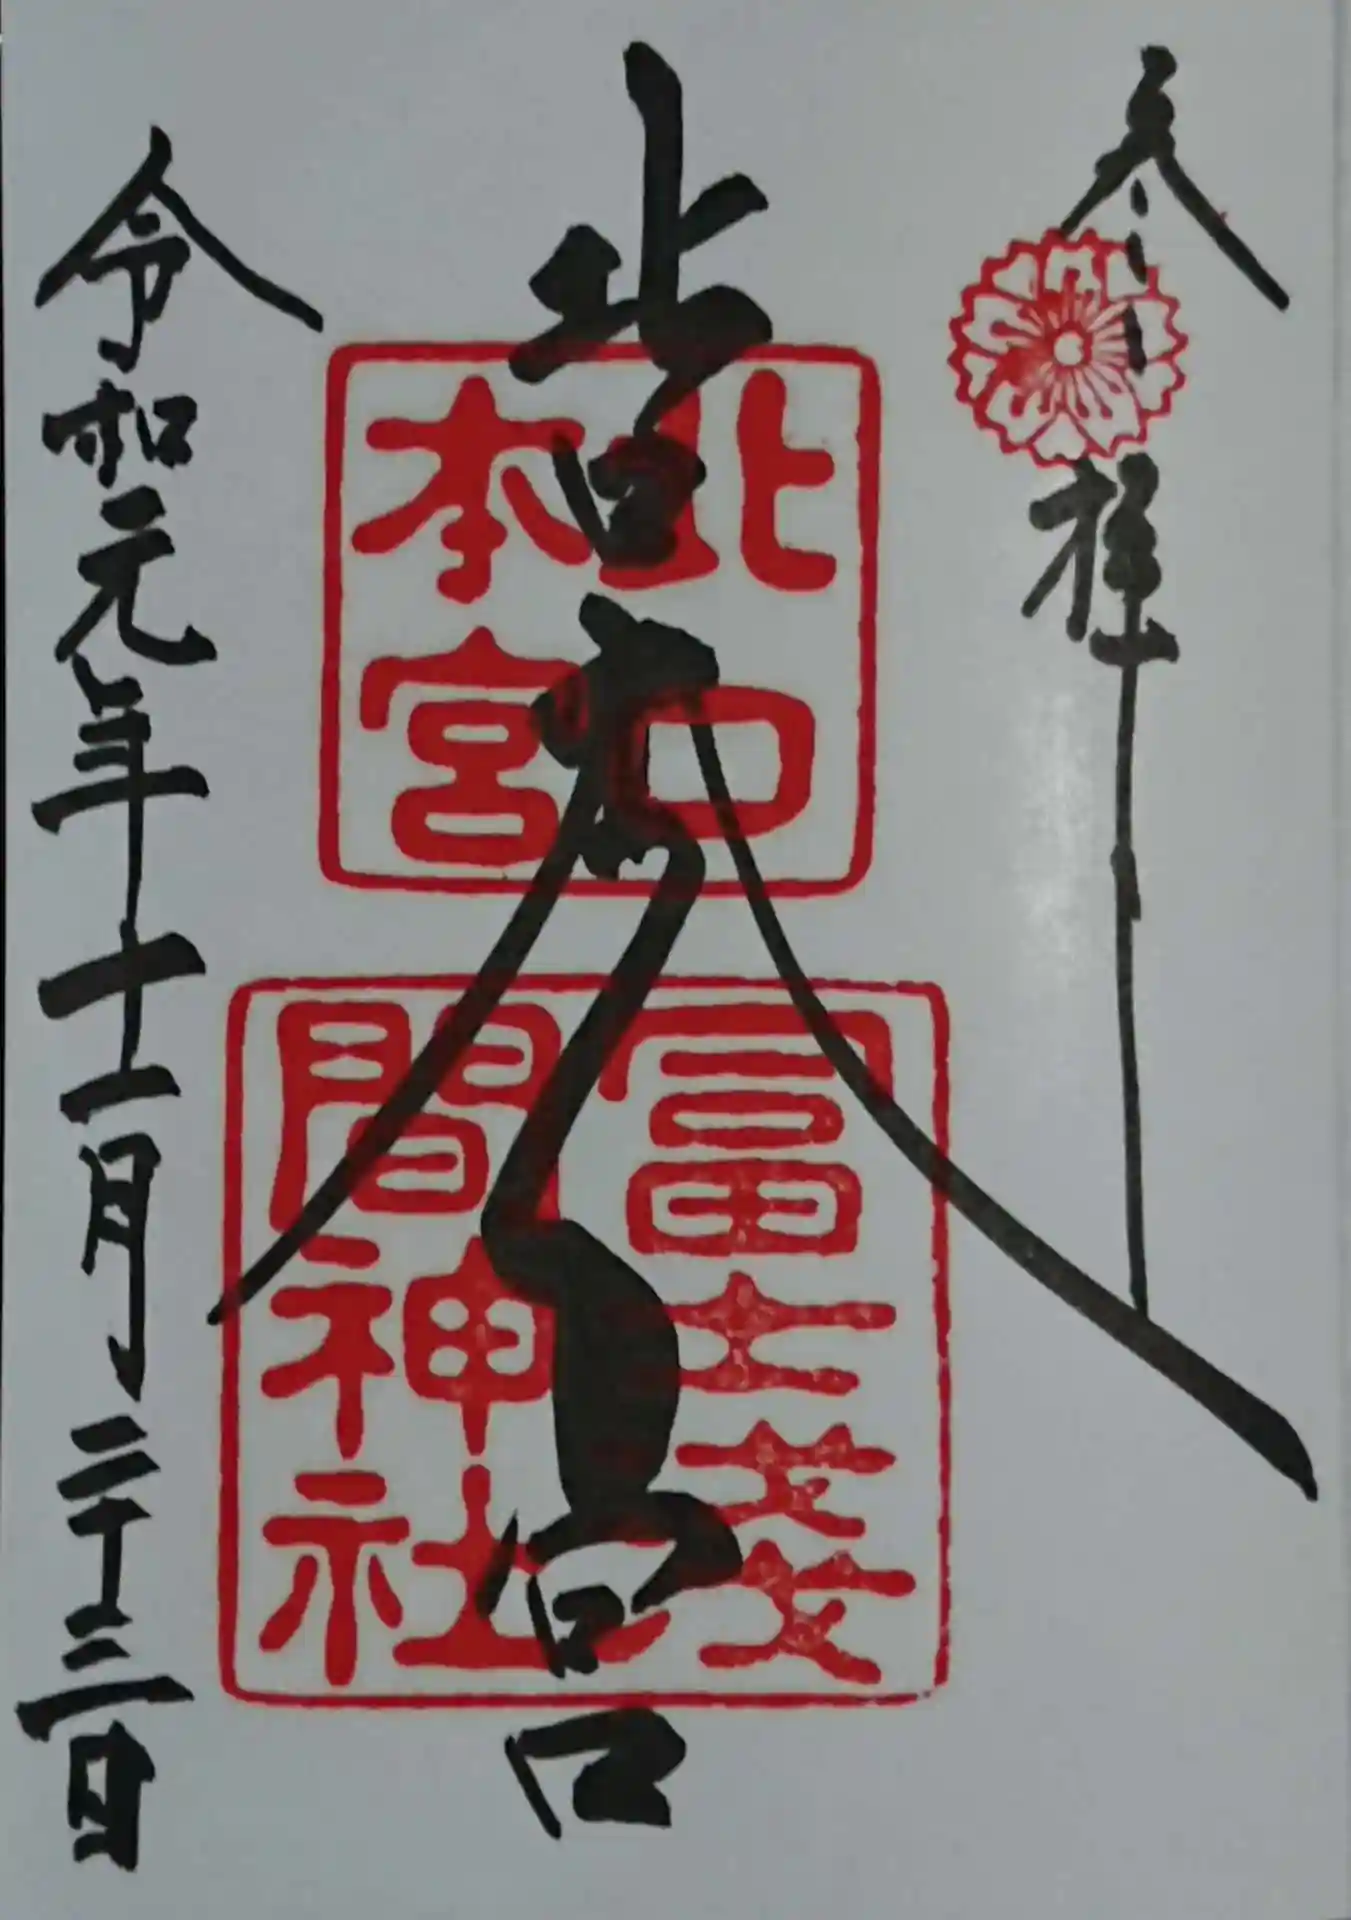 参拝
北口本宮
令和元年十一月二十三日
北口
本宮
冨士浅
間神社